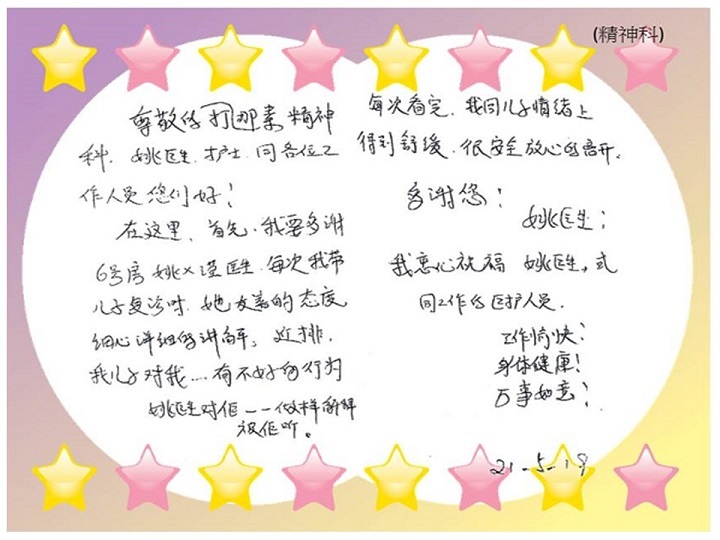 (精神科)
尊敬的打那素精神
科、姚医生、护士、同各位工
作人员您们好！
在这里、首先、我要多谢
6号房姚×滢医生、每次我带
儿子复诊时、她友善的态度
细心详细的讲解，近排、
我儿子对我……有不好的行为
姚医生对佢一一做样解释
被佢听。
每次看完、我同儿子情绪上
得到舒缓、很安全放心的离开。
多谢您！
姚医生；
我衷心祝福 姚医生，
同工作的医护人员、
工作愉快！
身体健康！
万事如意！
21-5-19